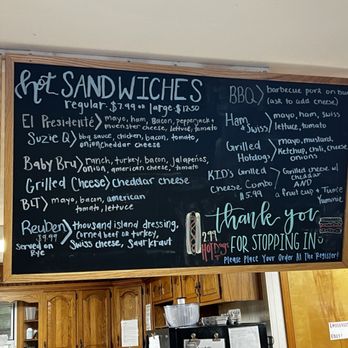 hot SANDWICHES
regular-$7.99 or large-$12.50
El Presidenté > mayo, ham, Bacon, pepperjack +
muenster cheese, lettuce, tomato
Suzie Q > bbq sauce, chicken, bacon, tomato,
onion, cheddar cheese
Baby Bru > ranch, turkey, bacon, jalapeños,
onion, american cheese, tomato
Grilled Cheese > cheddar cheese
BLT > mayo, bacon, american
tomato, lettuce
Reuben > thousand island dressing,
$9.99 corned beef or turkey,
Served on swiss cheese, saurkraut
Rye
BBQ > barbecue pork on bun
(ask to add cheese)
Ham + Swiss > mayo, ham, swiss
lettuce, tomato
Grilled Hotdog > mayo, mustard,
Ketchup, chili, cheese
onions
KID'S Grilled Cheese Combo > Grilled cheese w/
cheddar
$5.99 AND
a fruit cup + Juice
Yummie
2/$2.99
HOT Dogs
thank you
FOR STOPPING IN
Please Place Your Order At The Register!